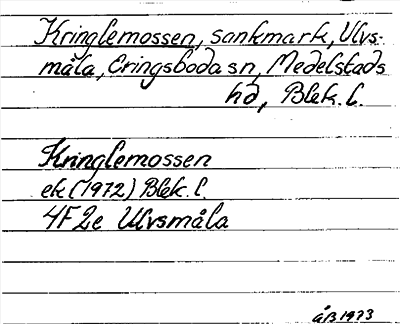 Kringlemossen, sankmark, Ulvs-
måla, Eringsboda sn, Medelstads
hd, Blek. l.
Kringlemossen
ek (1972) Blek. l.
4F 2e Ulvsmåla
ÅB 1973